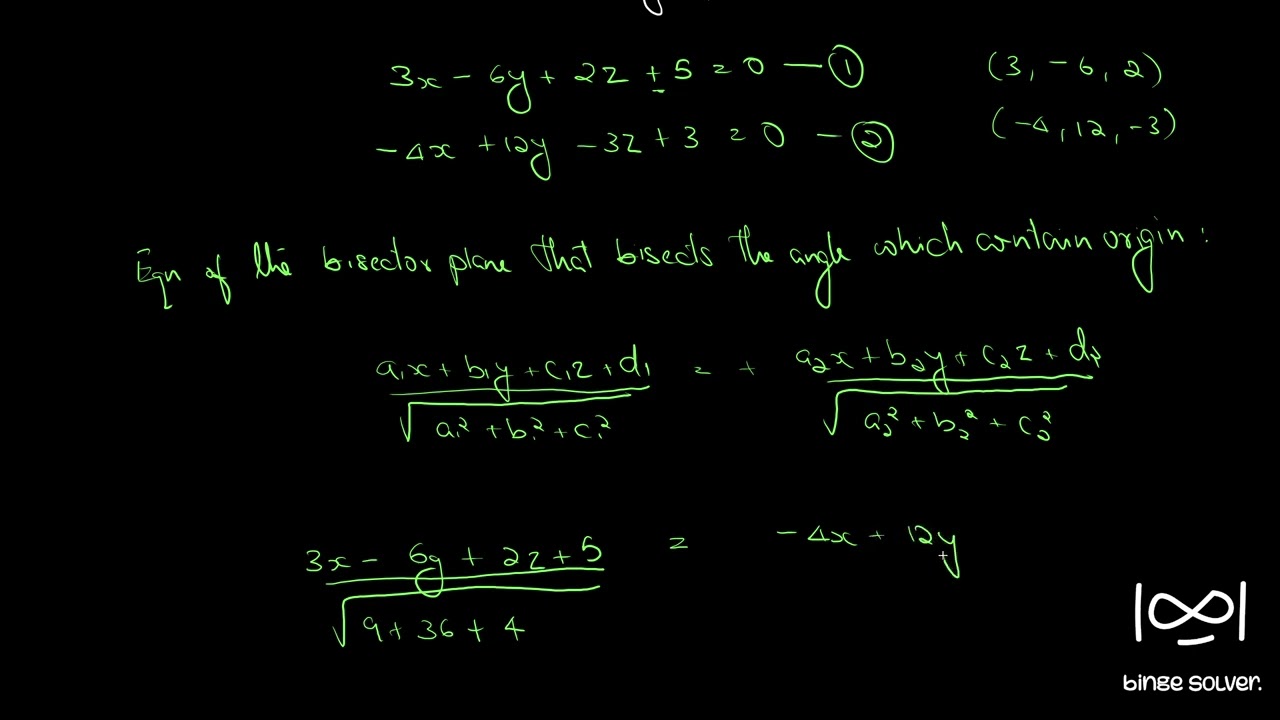 3x - 6y + 2z + 5 = 0 — ① (3, -6, 2)
-4x + 12y - 3z + 3 = 0 - ② (-4, 12, -3)
Eqn of the bisector plane that bisects the angle which contain origin :
a₁x + b₁y + c₁z + d₁ = + a₂x + b₂y + c₂z + d₂
√a₁² + b₁² + c₁² √a₂² + b₂² + c₂²
3x - 6y + 2z + 5 = -4x + 12y
√9 + 36 + 4
binge solver.